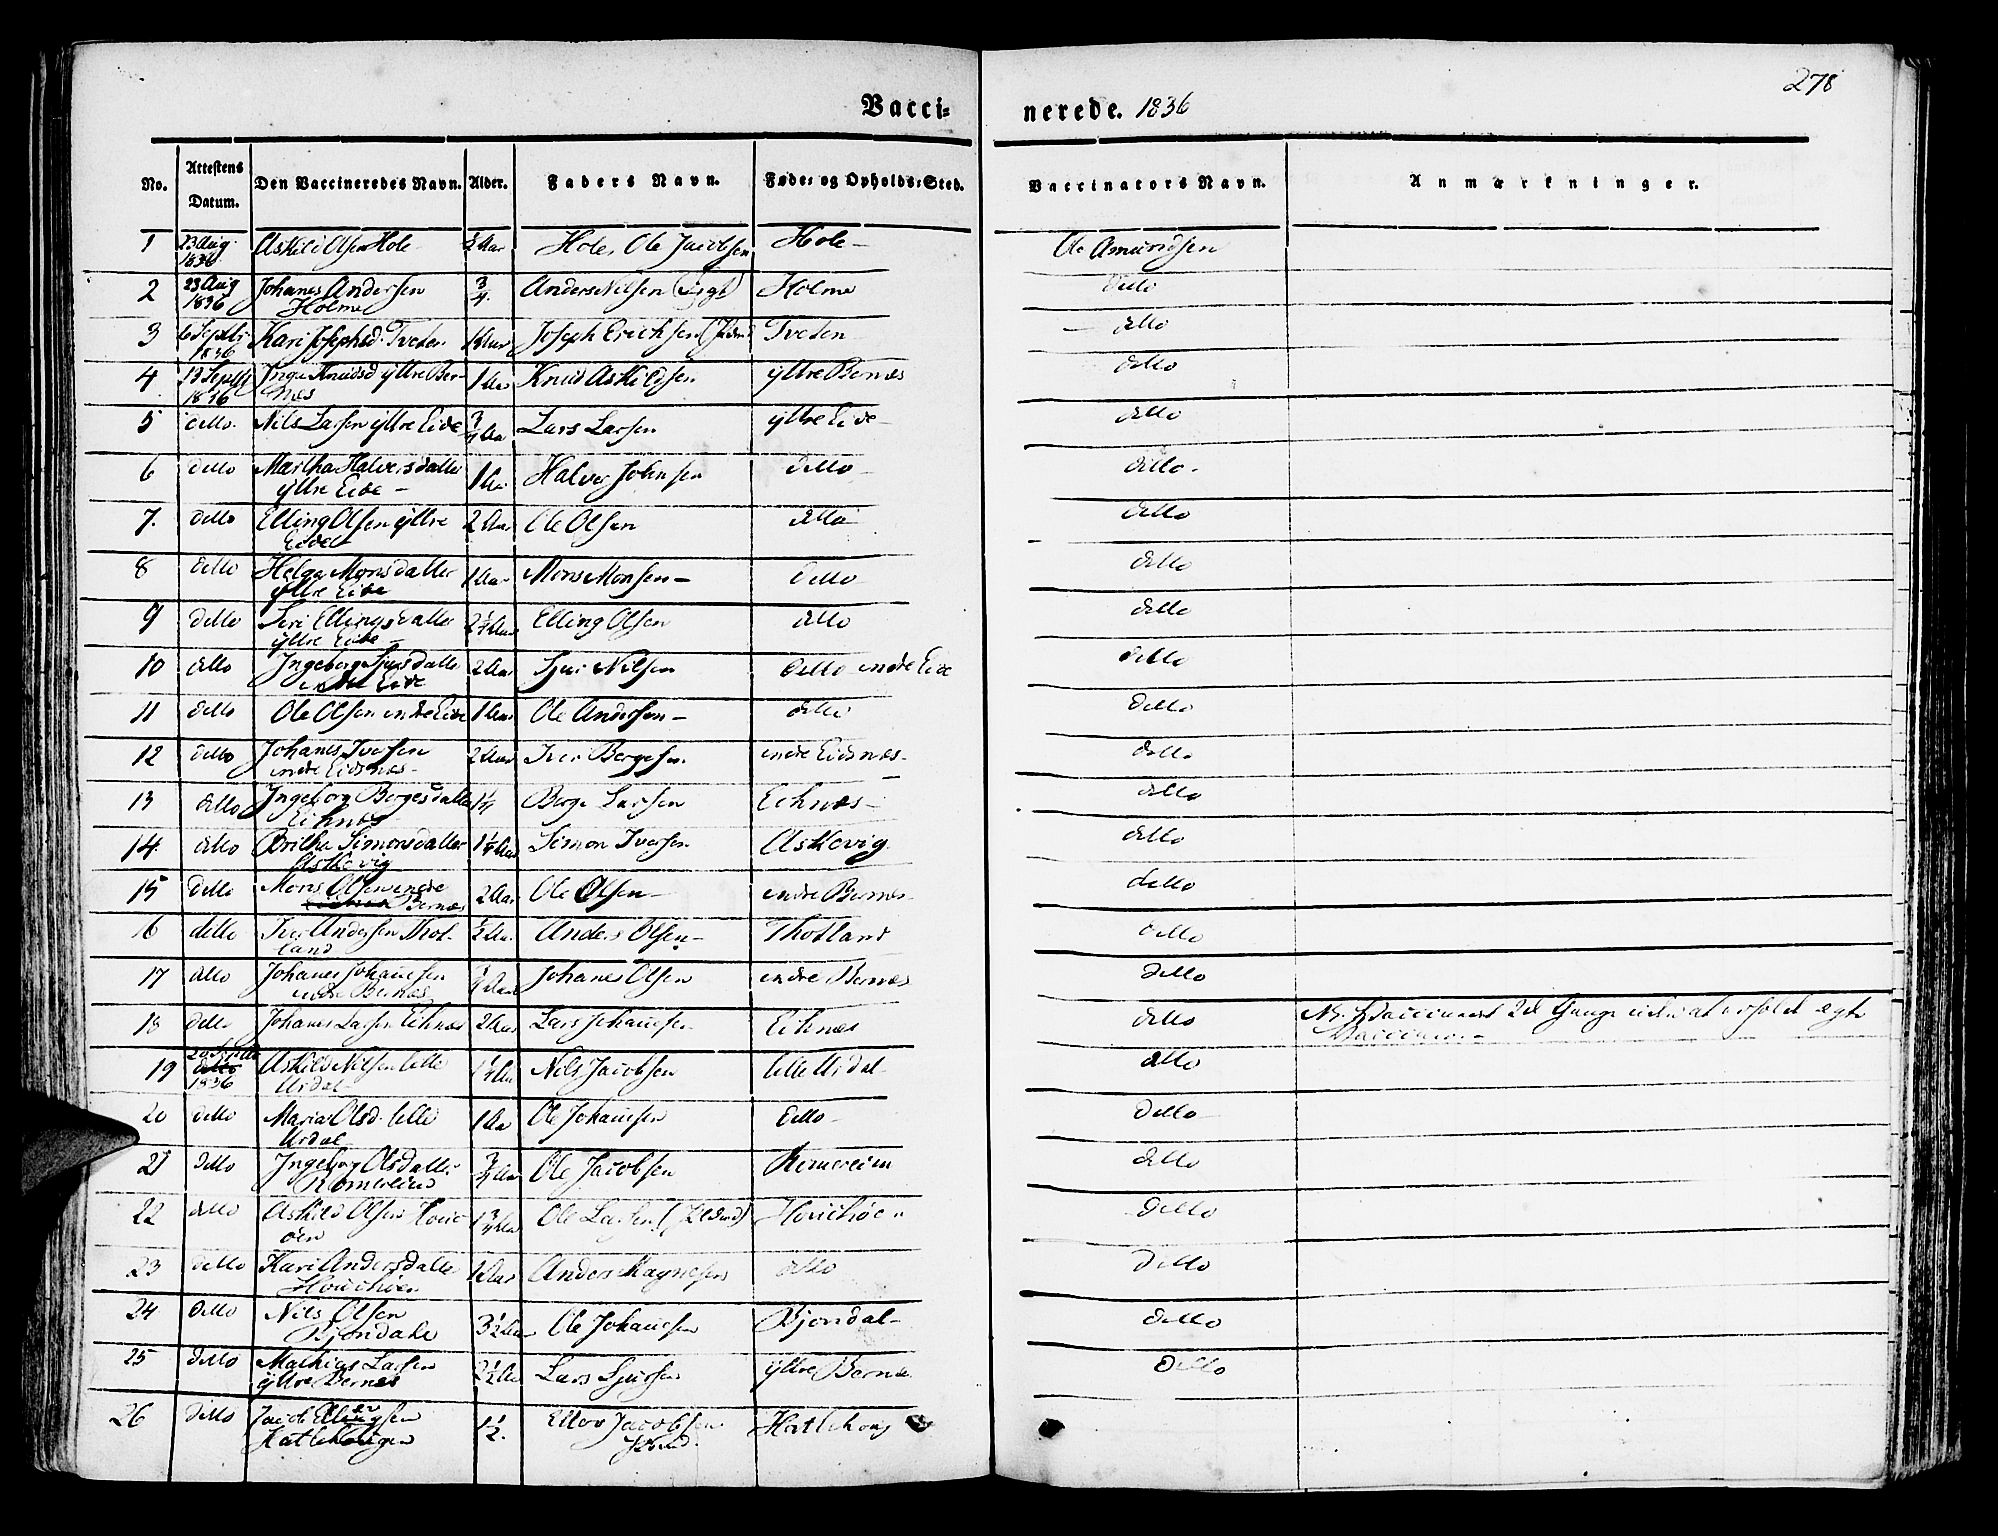 278
Vacci- nerede. 1836
No. Attestens Datum. Den Vaccineredes Navn. Alder. Faders Navn. Føde- og Opholds-Sted. Vaccinators Navn. Anmærkninger.
1 23 Aug. 1836 Askild Olsen Hole Aar Hole, Ole Jacobsen Hole Ole Amundsen
2 23 Aug 1836 Johanes Andersen Holme 3/4 Anders Nilsen Holme ditto
3 6 Septbr 1836 Kari Josephsd. Tveten Aar Joseph Erichsen Tveten ditto
4 13 Septbr 1836 Inga Knudsd yttre Bernæs 1 Aar Knud Askildsen yttre Bernæs ditto
5 ditto Nils Larsen yttre Eide 3/4 Aar Lars Larsen yttre Eide ditto
6 ditto Martha Halvorsdatter yttre Eide 1 Aar Halvor Johnsen ditto ditto
7. ditto Elling Olsen yttre Eide 2 Aar Ole Olsen ditto ditto
8 ditto Helga Monsdatter yttre Eide 1 Aar Mons Monsen ditto ditto
9 ditto Siri Ellingsdatter yttre Eide 2 1/4 Aar Elling Olsen ditto ditto
10 ditto Ingeborg Sjursdatter indre Eide 2 Aar Sjur Nilsen ditto indre Eide ditto
11 ditto Ole Olsen indre Eide 1 Aar Ole Andersen ditto ditto
12 ditto Johanes Iversen indre Eidsnæs 2 Aar Iver Bergesen indre Eidsnæs ditto
13 ditto Ingeborg Bergesdatter Eihnæs 1 1/4 Berge Larsen Eihnæs ditto
14. ditto Britha Simonsdatter Askevig 1 1/4 Aar Simon Iversen Askevig ditto
15 ditto Mons Olsen indre Bernæs 2 Aar Ole Olsen indre Bernæs ditto
16 ditto Iver Andersen Thotland Aar Anders Olsen Thotland ditto
17 ditto Johanes Johanesen indre Bernæs Aar Johanes Olsen indre Bernæs ditto
18 ditto Johanes Larsen Eihnæs 2 Aar Lars Johanesen Eihnæs ditto 2de Gange uden at ægte
19 20 Septbr 1836 Askild Nilsen lille Urdal 1 1/4 Aar Nils Jacobsen lille Urdal ditto
20 ditto Maria Olsd. lille Urdal 1 Aar Ole Johanesen ditto ditto
21 ditto Ingeborg Olsdatter Romereim 3/4 Aar Ole Jacobsen Romereim ditto
22 ditto Askild Olsen 1 3/4 Aar Ole Larsen ditto
23 ditto Kari Andersdatter 1 Aar Anders Magnesen ditto ditto
24 ditto Nils Olsen Bjøndale 3 1/2 Aar Ole Johanesen Bjøndal ditto
25 ditto Mathias Larsen yttre Bernæs 2 1/2 Aar Lars Sjursen yttre Bernæs ditto
26 ditto Jacob Hatlehougen 1 1/2. Ellov Jacobsen Hatlehoug